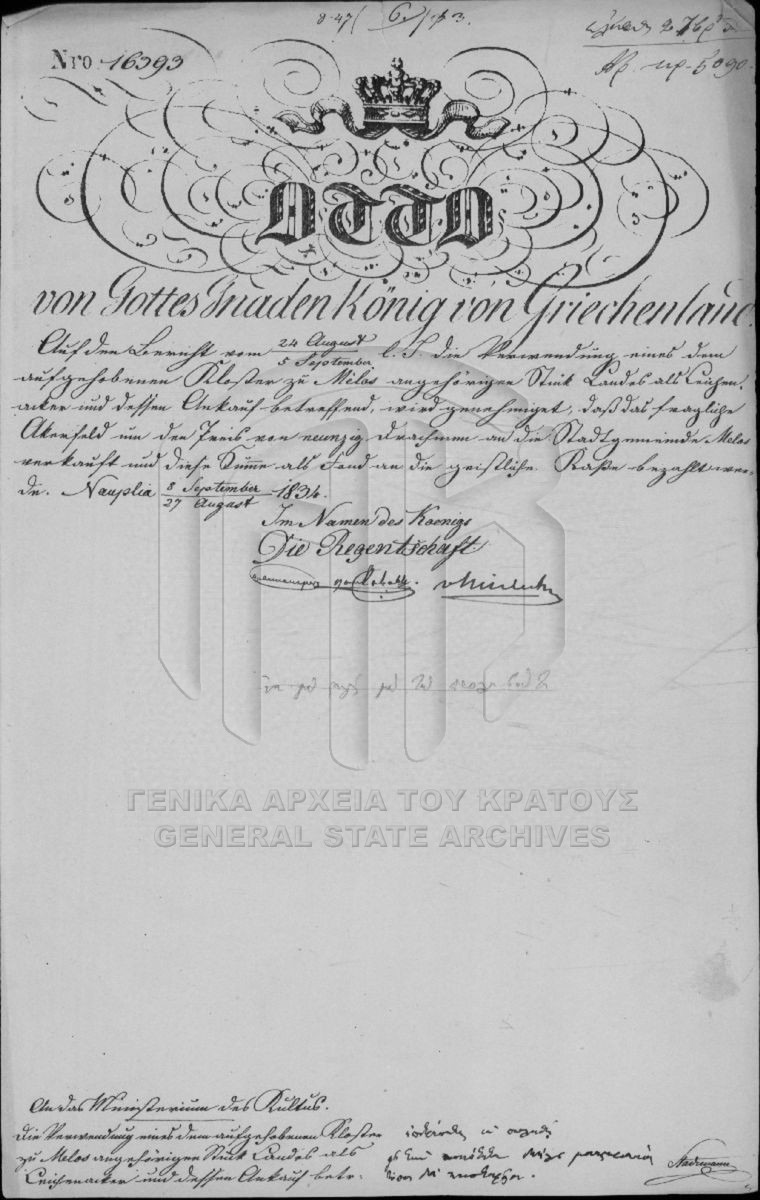 847 ( 6. ) 3.
Nro. 16393
5090.
OTTO
von Gottes Gnaden König von Griechenland.
Auf den Bericht vom 24 August / 5 September l. J. die Verwendung eines dem
aufgehobenen Kloster zu Melos angehörigen Stük Landes als Leichen-
acker und dessen Ankauf betreffend, wird genehmiget, daß das fragliche
Akerfeld um den Preis von neunzig Drachmen an die Stadtgemeinde Melos
verkauft und diese Summe als Fond an die geistliche Kaße bezahlt wer-
de. Nauplia 8 September / 27 August 1834.
Im Namen des Koenigs
Die Regentschaft
ΓΕΝΙΚΑ ΑΡΧΕΙΑ ΤΟΥ ΚΡΑΤΟΥΣ
GENERAL STATE ARCHIVES
An das Ministerium des Kultus.
Die Verwendung eines dem aufgehobenen Kloster
zu Melos angehörigen Stük Landes als
Leichenacker und dessen Ankauf betr.